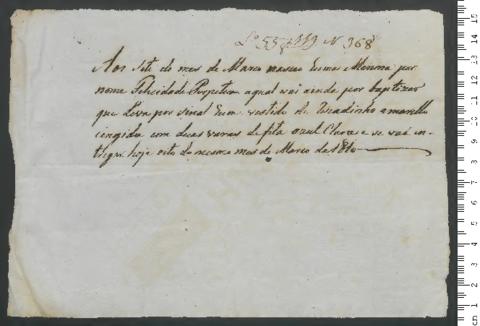 Lº 55 f 119 N 368
Aos Sete do mes de Marco nasceu huma Menina por
nome Felicidade Perpetua aqual vai ainda por baptizar
que Leva por sinal hum vestido de Riscadinho amarello
cingido com duas varas de fita azul Clara e se vai en-
tregar hoje oito do mesmo mes de Marco de 1810